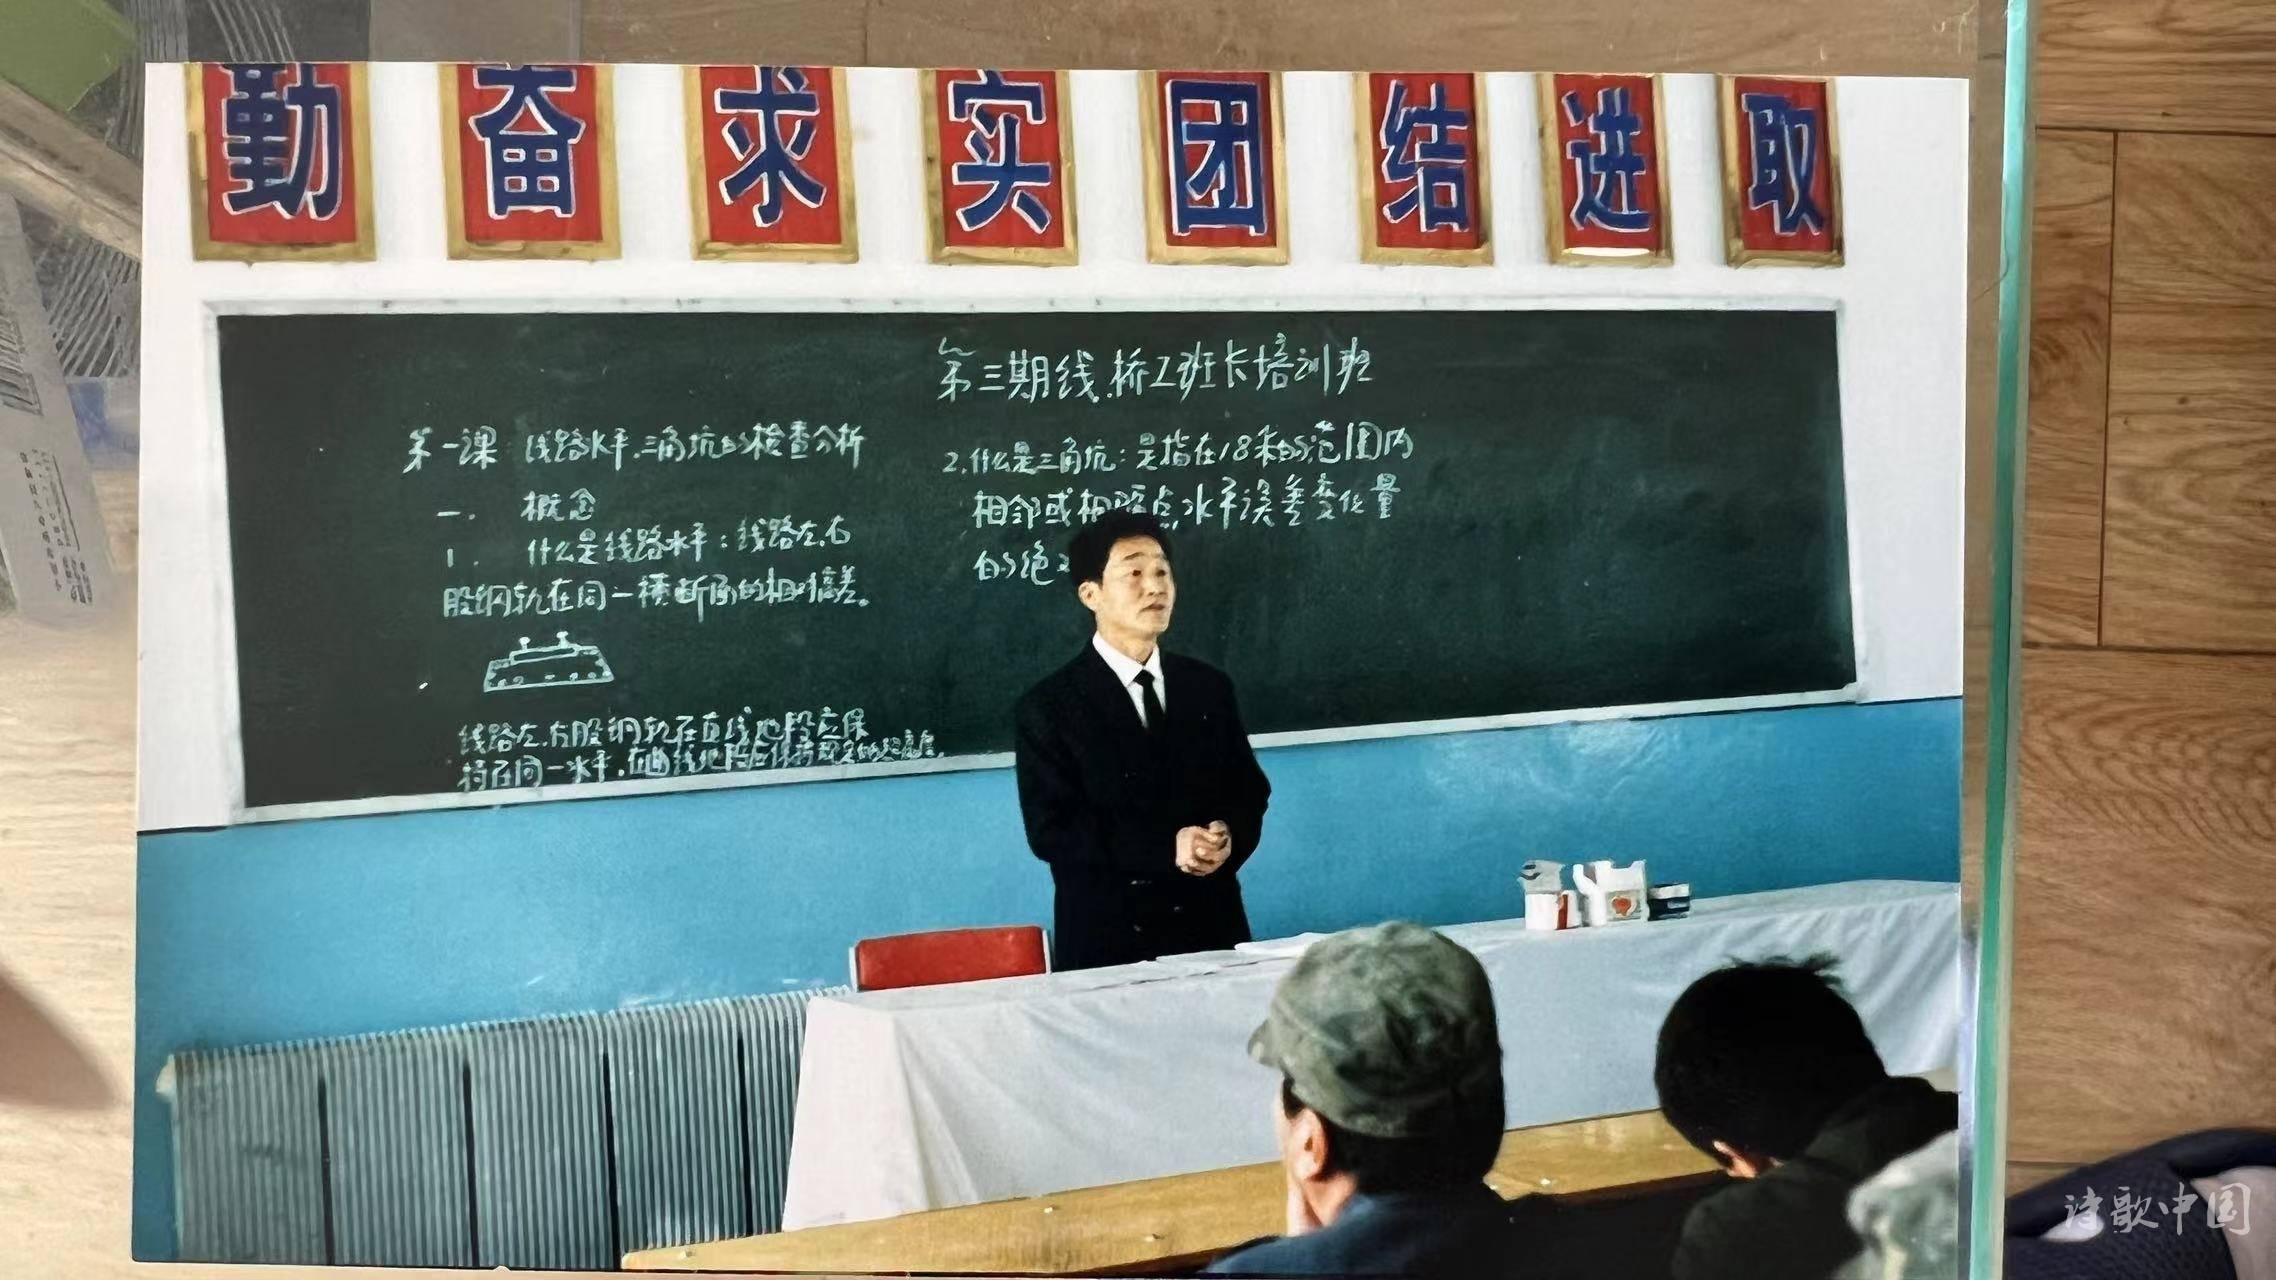 勤奋求实团结进取
第三期线.桥工班长培训班
第一课 线路水平.三角坑的检查分析
一. 概念
1. 什么是线路水平：线路左.右
股钢轨在同一横断面的相对高差。
线路左.右股钢轨在直线地段应保
持在同一水平.在曲线地段应保持规定的超高度.
2.什么是三角坑：是指在18米的范围内
相邻或相隔点水平误差变化量
的绝
诗歌中国